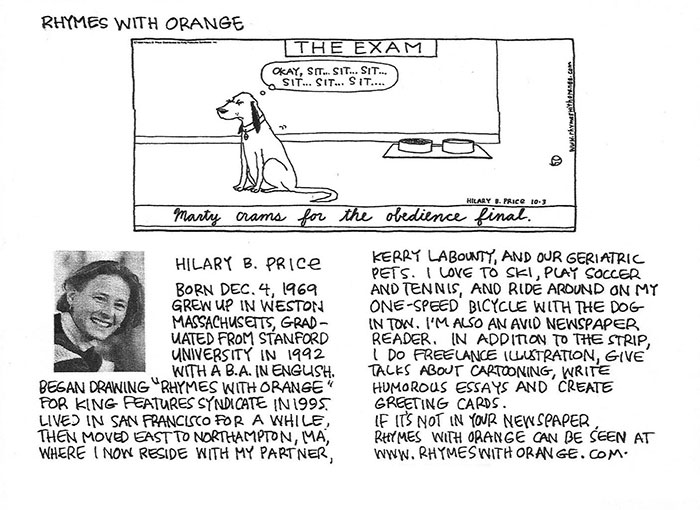 RHYMES WITH ORANGE
THE EXAM
OKAY, SIT... SIT... SIT...
SIT... SIT... SIT....
www.rhymeswithorange.com
HILARY B. PRICE 10·3
Marty crams for the obedience final.
HILARY B. PRICE
BORN DEC. 4, 1969
GREW UP IN WESTON
MASSACHUSETTS, GRAD-
UATED FROM STANFORD
UNIVERSITY IN 1992
WITH A B.A. IN ENGLISH.
BEGAN DRAWING "RHYMES WITH ORANGE"
FOR KING FEATURES SYNDICATE IN 1995.
LIVED IN SAN FRANCISCO FOR A WHILE,
THEN MOVED EAST TO NORTHAMPTON, MA,
WHERE I NOW RESIDE WITH MY PARTNER,
KERRY LABOUNTY, AND OUR GERIATRIC
PETS. I LOVE TO SKI, PLAY SOCCER
AND TENNIS, AND RIDE AROUND ON MY
ONE-SPEED BICYCLE WITH THE DOG
IN TOW. I'M ALSO AN AVID NEWSPAPER
READER. IN ADDITION TO THE STRIP,
I DO FREELANCE ILLUSTRATION, GIVE
TALKS ABOUT CARTOONING, WRITE
HUMOROUS ESSAYS AND CREATE
GREETING CARDS.
IF IT'S NOT IN YOUR NEWSPAPER,
RHYMES WITH ORANGE CAN BE SEEN AT
WWW.RHYMESWITHORANGE.COM.